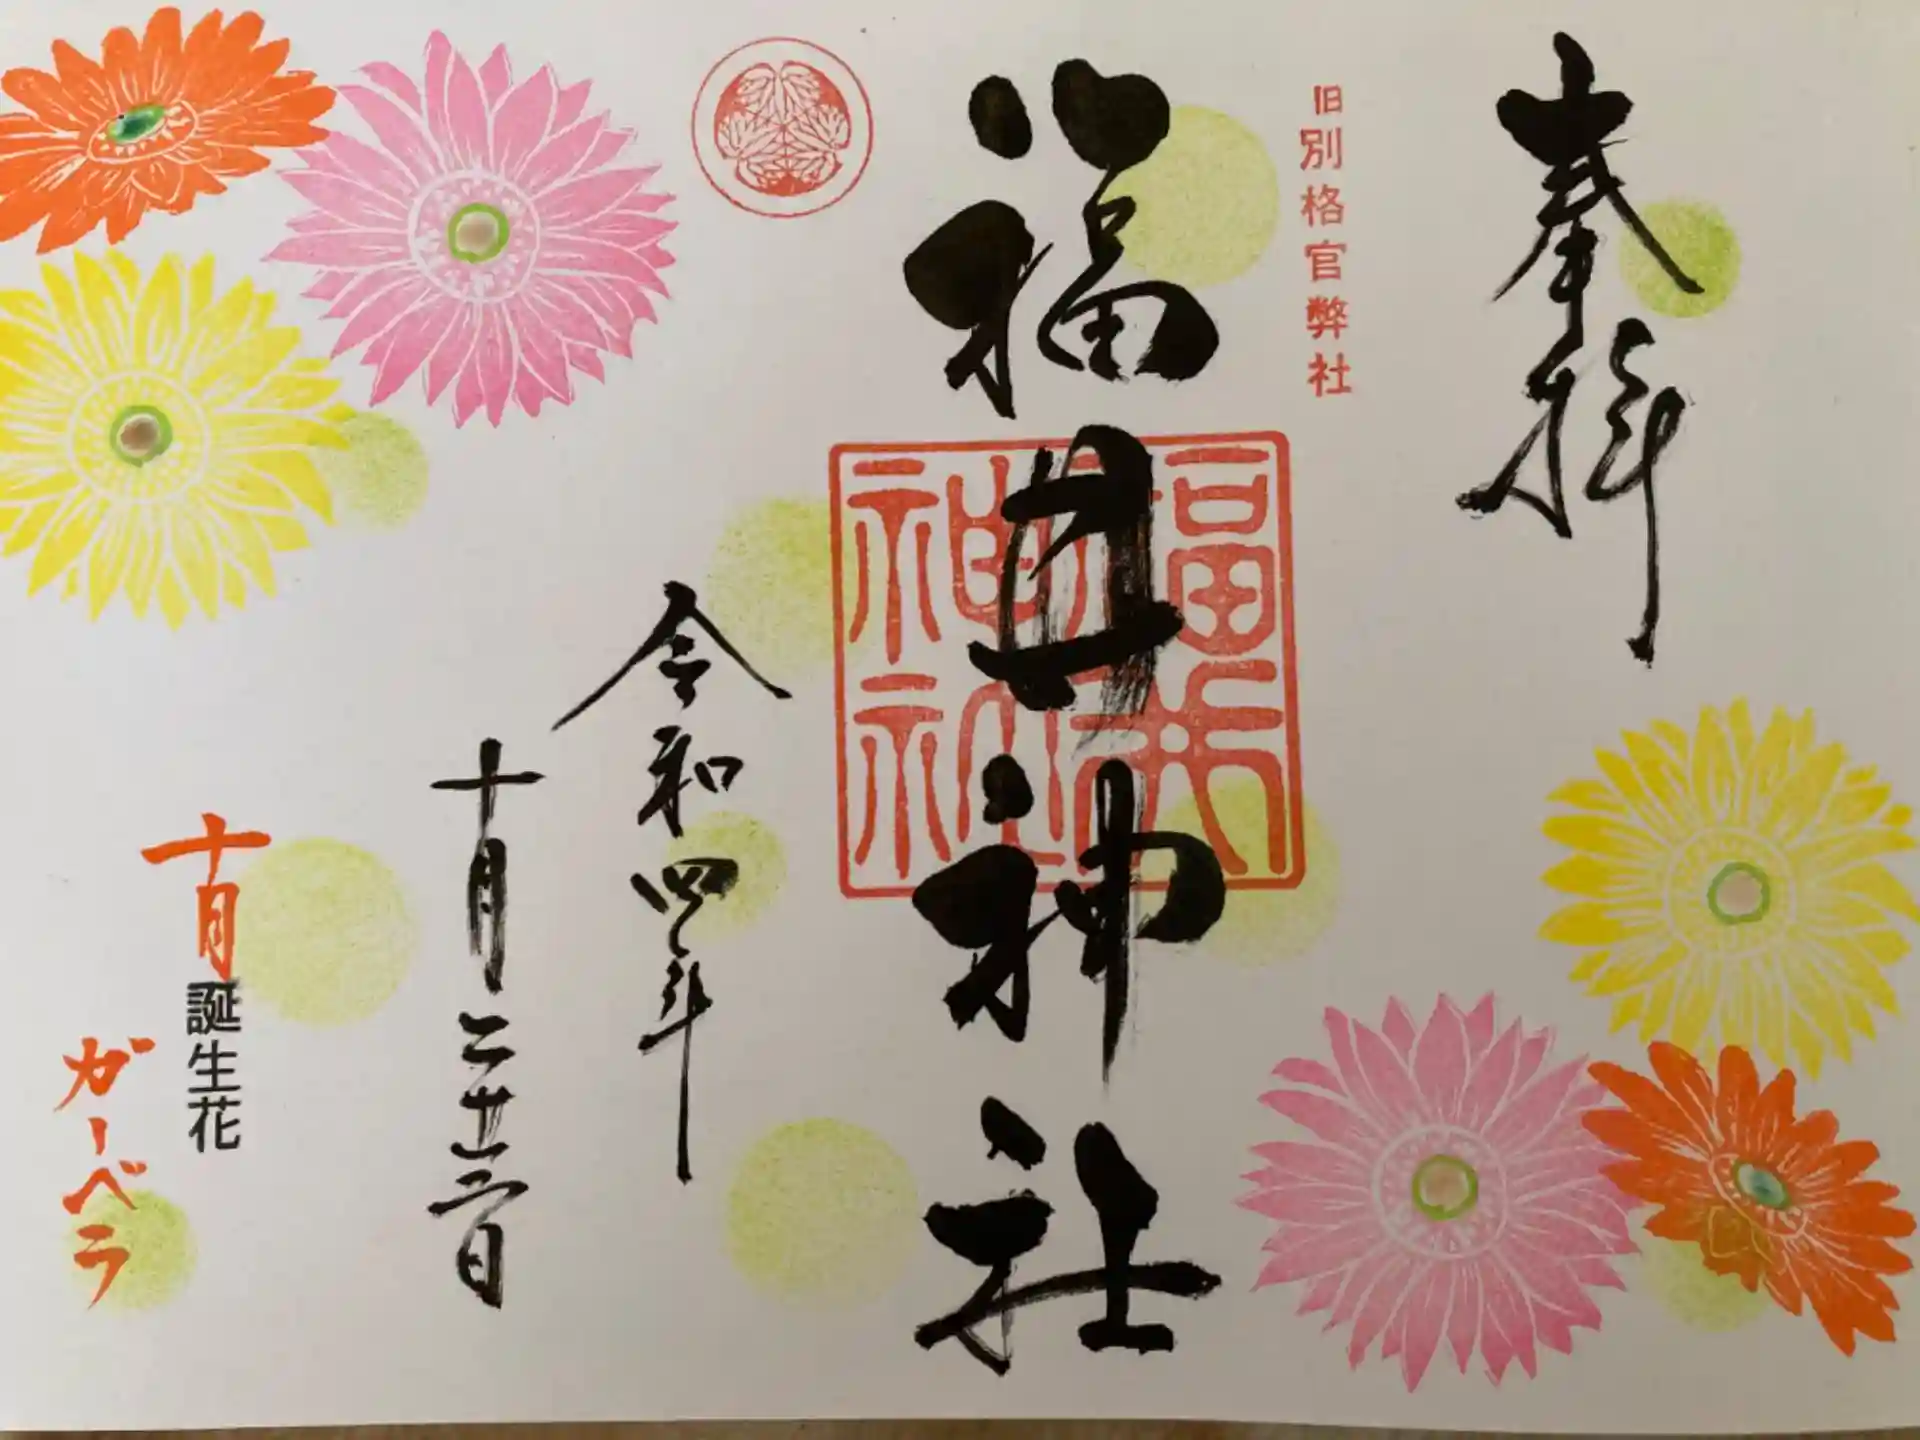 奉拝
旧別格官弊社
福井神社
福井神社
令和四年
十月二十日
十月誕生花
ガーベラ